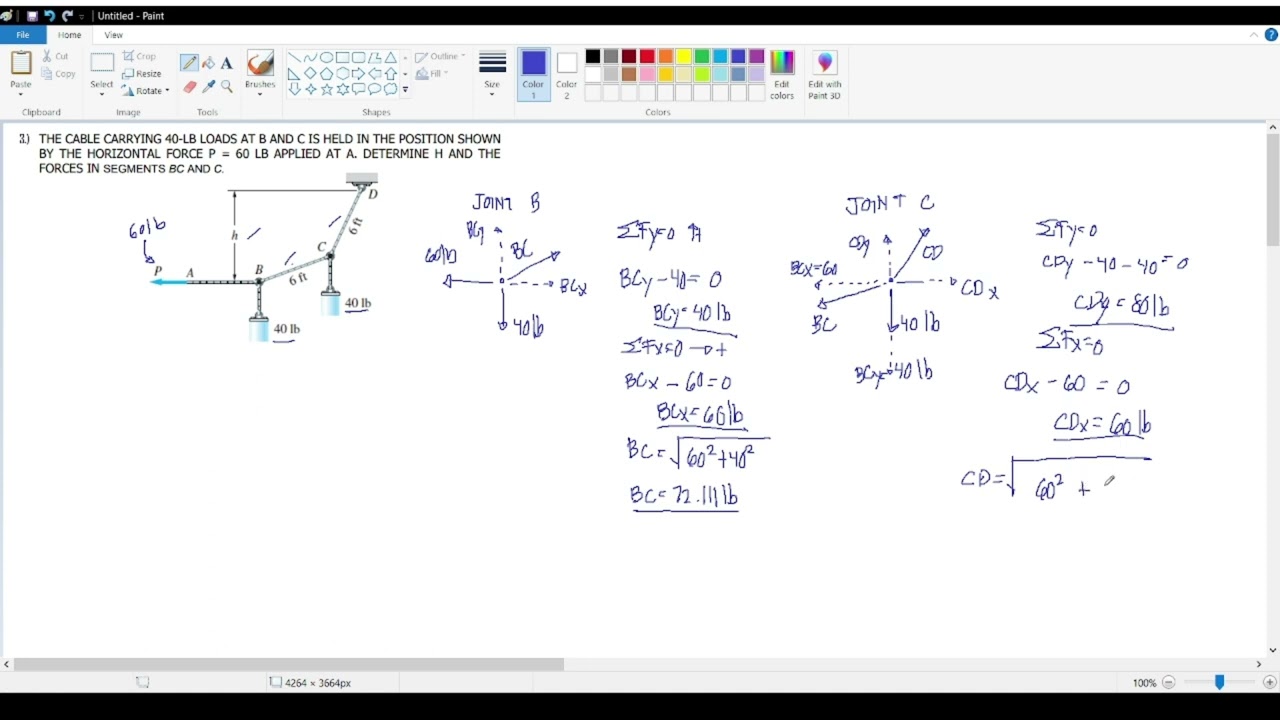 Untitled - Paint
File
Home
View
Paste
Cut
Copy
Clipboard
Select
Crop
Resize
Rotate
Image
Tools
Brushes
Shapes
Outline
Fill
Size
Color
1
Color
2
Colors
Edit
colors
Edit with
Paint 3D
3.) THE CABLE CARRYING 40-LB LOADS AT B AND C IS HELD IN THE POSITION SHOWN
BY THE HORIZONTAL FORCE P = 60 LB APPLIED AT A. DETERMINE H AND THE
FORCES IN SEGMENTS BC AND C.
60lb
P
A
B
C
D
h
6 ft
6 ft
40 lb
40 lb
JOINT B
BCy
BC
60lb
BCx
40lb
ΣFy=0 ↑+
BCy-40=0
BCy=40lb
ΣFx=0 →+
BCx-60=0
BCx=60lb
BC=√60²+40²
BC=72.111lb
JOINT C
CDy
CD
BCx=60
CDx
BC
40lb
BCy=40lb
ΣFy=0
CDy-40-40=0
CDy=80lb
ΣFx=0
CDx-60=0
CDx=60lb
CD=√60²+
4264 × 3664px
100%